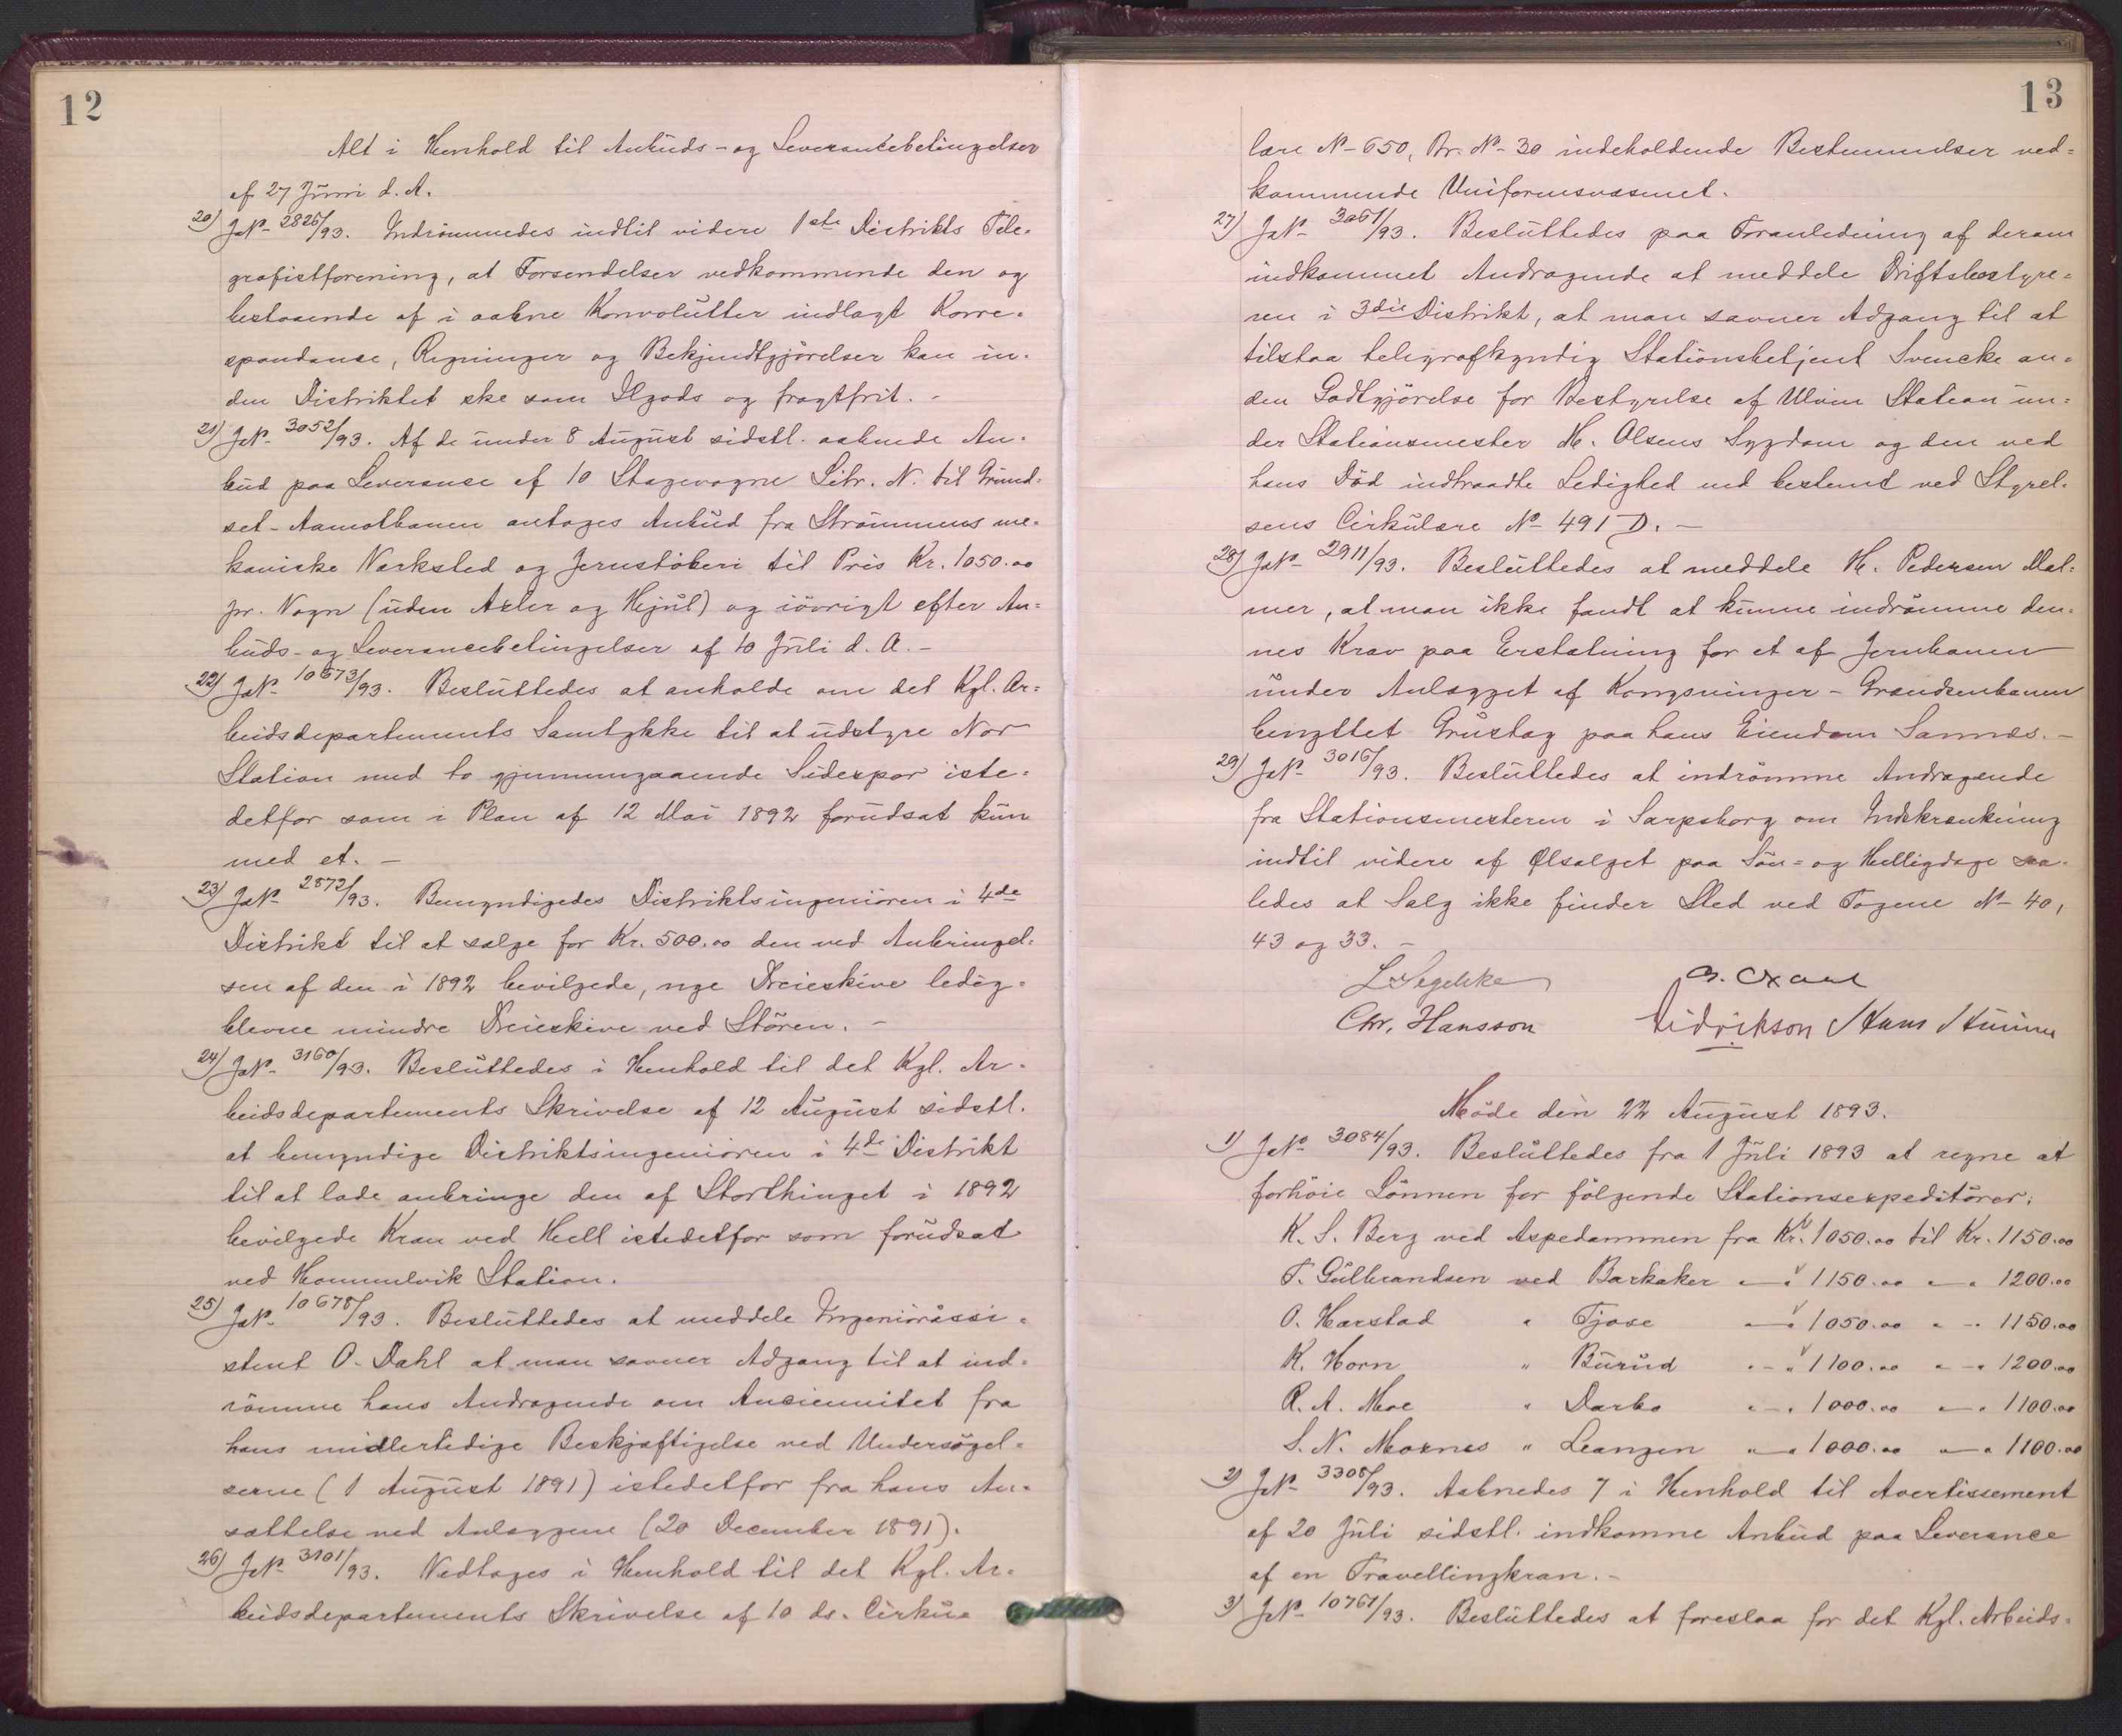 12
Alt i Henhold til Anbuds- og Leverancebetingelser
af 27 Juni d. A.
20) J№ 2825/93. Indrömmedes indtil videre 1ste Distrikts Tele-
grafistforening, at Forsendelser vedkommende den og
bestaaende af i aabne Konvolutter indlagt Korre-
spondanse, Regninger og Bekjendtgjörelser kan in-
den Distriktet ske som Ilgods og fragtfrit. -
21) J№ 3052/93. Af de under 8 August sidstl. aabnede An-
bud paa Leveranse af 10 Stagevogne Litr. N. til Grund-
set-Aamotbanen antages Anbud fra Strömmens me-
kaniske Værksted og Jernstöberi til Pris Kr. 1050.00
pr. Vogn (uden Axler og Hjul) og iövrigt efter An-
buds- og Leverancebetingelser af 10 Juli d. A. -
22) J№ 10673/93. Besluttedes at anholde om det Kgl. Ar-
beidsdepartements Samtykke til at udstyre Nor
Station med to gjennemgaaende Sidespor iste-
detfor som i Plan af 12 Mai 1892 forudsat kun
med et. -
23) J№ 2872/93. Bemyndigedes Distriktsingeniören i 4de
Distrikt til at sælge for Kr. 500.00 den ved Anbringel-
sen af den i 1892 bevilgede, nye Dreieskive ledig-
blevne mindre Dreieskive ved Stören. -
24) J№ 3160/93. Besluttedes i Henhold til det Kgl. Ar-
beidsdepartements Skrivelse af 12 August sidstl.
at bemyndige Distriktsingeniören i 4de Distrikt
til at lade anbringe den af Storthinget i 1892
bevilgede Kran ved Hell istedetfor som forudsat
ved Hommelvik Station.
25) J№ 10678/93. Besluttedes at meddele Ingeniörassi-
stent O. Dahl at man savner Adgang til at ind-
römme hans Andragende om Anciennitet fra
hans midlertidige Beskjæftigelse ved Undersögel-
serne (1 August 1891) istedetfor fra hans An-
sættelse ved Anlæggene (20 December 1891).
26) J№ 3101/93. Vedtoges i Henhold til det Kgl. Ar-
beidsdepartements Skrivelse af 10 ds. Cirku-
13
lære № 650, Br. № 30 indeholdende Bestemmelser ved-
kommende Uniformsvæsenet.
27) J№ 3061/93. Besluttedes paa Foranledning af derom
indkommet Andragende at meddele Driftsbestyre-
ren i 3die Distrikt, at man savner Adgang til at
tilstaa telegrafkyndig Stationsbetjent Svencke an-
den Godtgjörelse for Bestyrelse af Ulvin Station un-
der Stationsmester H. Olsens Sygdom og den ved
hans Död indtraadte Ledighed end bestemt ved Styrel-
sens Cirkulære № 491 D. -
28) J№ 2911/93. Besluttedes at meddele H. Pedersen Mal-
mer, at man ikke fandt at kunne indrömme den-
nes Krav paa Erstatning for et af Jernbanen
under Anlægget af Kongsvinger-Grændsenbanen
benyttet Grustag paa hans Eiendom Sannæs. -
29) J№ 3016/93. Besluttedes at indrömme Andragende
fra Stationsmesteren i Sarpsborg om Indskrænkning
indtil videre af Ølsalget paa Sön- og Helligdage saa-
ledes at Salg ikke finder Sted ved Togene № 40,
43 og 33. -
L Segelcke
Chr. Hansson Didrikson
Möde den 22 August 1893.
1) J№ 3084/93. Besluttedes fra 1 Juli 1893 at regne at
forhöie Lönnen for fölgende Stationsexpeditörer:
K. S. Berg ved Aspedammen fra Kr. 1050.00 til Kr. 1150.00
T. Gulbrandsen ved Barkaker " - " 1150.00 " - " 1200.00
O. Harstad " Tjose " - " 1050.00 " - " 1150.00
K. Horn " Burud " - " 1100.00 " - " 1200.00
R. A. Moe " Darbo " - " 1000.00 " - " 1100.00
S. N. Moxnes " Leangen " - " 1000.00 " - " 1100.00
2) J№ 3308/93. Aabnedes 7 i Henhold til Avertissement
af 20 Juli sidstl. indkomne Anbud paa Leverance
af en Travellingkran. -
3) J№ 10761/93. Besluttedes at foreslaa for det Kgl. Arbeids-